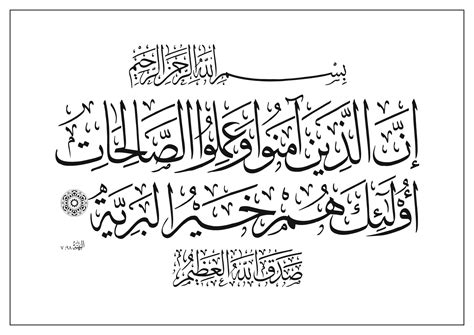 بِسْمِ اللَّهِ الرَّحْمَنِ الرَّحِيمِ
إِنَّ الَّذِينَ آمَنُوا وَعَمِلُوا الصَّالِحَاتِ
أُوْلَٰئِكَ هُمْ خَيْرُ الْبَرِيَّةِ
البينة ٧/٩٨
صَدَقَ اللَّهُ الْعَظِيمُ